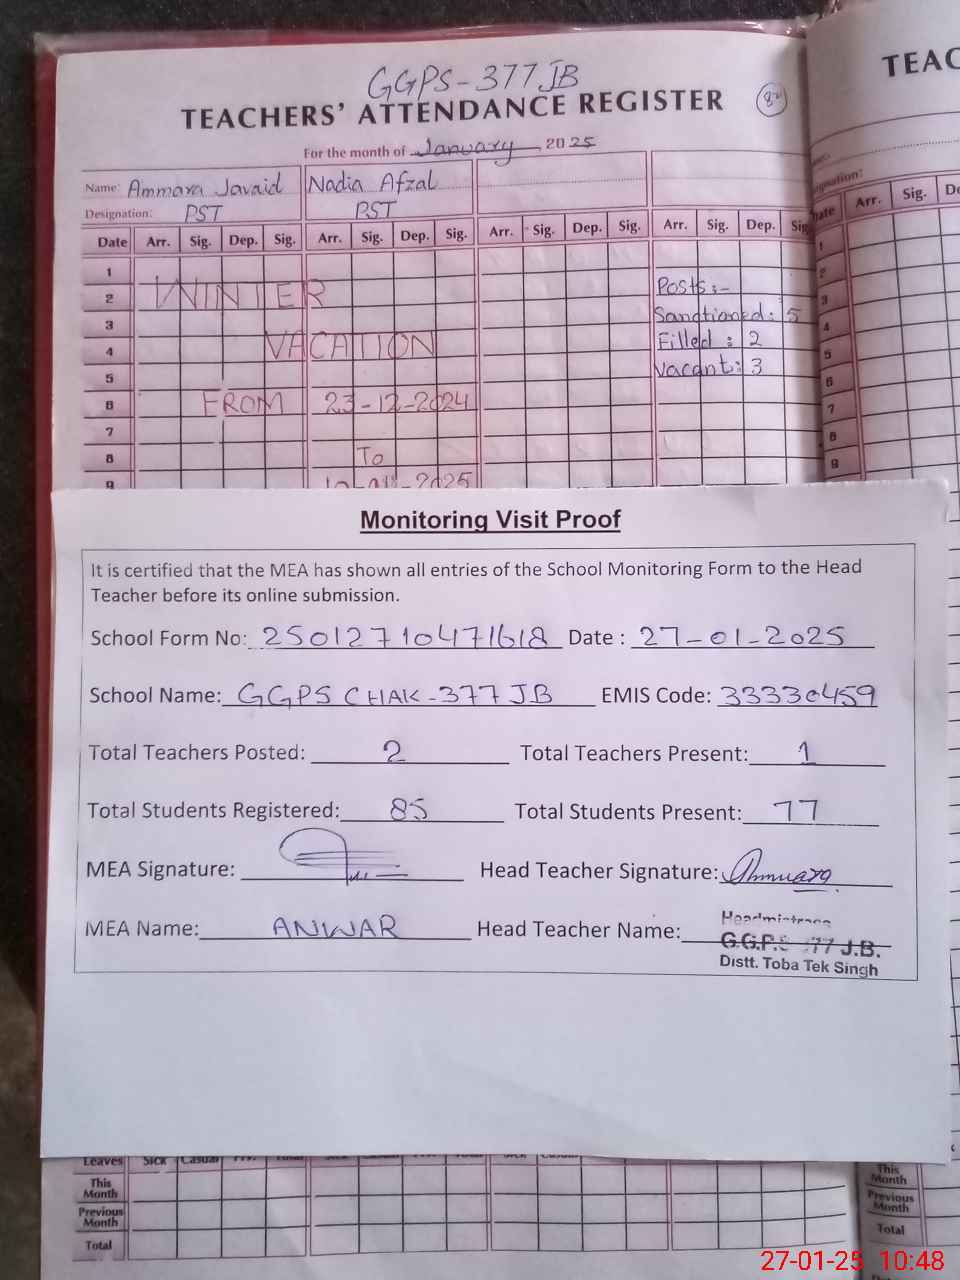 GGPS-377JB
TEACHERS' ATTENDANCE REGISTER
82
For the month of January 2025
Name: Ammara Javaid Nadia Afzal
Designation: PST PST
Date Arr. Sig. Dep. Sig. Arr. Sig. Dep. Sig. Arr. Sig. Dep. Sig. Arr. Sig. Dep. Sig
1
2 WINTER Posts:-
3 Sanctioned: 5
4 VACATION Filled: 2
5 Vacant: 3
6 FROM 23-12-2024
7
8 To
9
TEAC
Arr. Sig. De
1
2
3
4
5
6
7
8
9
Monitoring Visit Proof
It is certified that the MEA has shown all entries of the School Monitoring Form to the Head
Teacher before its online submission.
School Form No: 25012710471618 Date : 27-01-2025
School Name: GGPS CHAK-377 JB EMIS Code: 33330459
Total Teachers Posted: 2 Total Teachers Present: 1
Total Students Registered: 85 Total Students Present: 77
MEA Signature: Head Teacher Signature:
MEA Name: ANWAR Head Teacher Name:
Headmistress
G.G.P.S 377 J.B.
Distt. Toba Tek Singh
Leaves Sick Casual
This
Month
Previous
Month
Total
This
Month
Previous
Month
Total
27-01-25 10:48